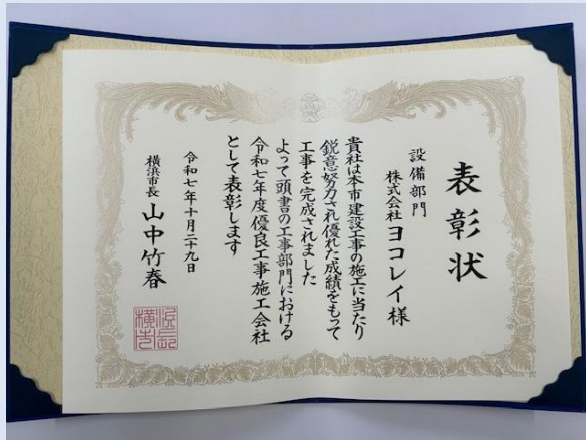 表彰状
設備部門
株式会社ヨコレイ様
貴社は本市建設工事の施工に当たり
鋭意努力され優れた成績をもって
工事を完成されました
よって頭書の工事部門における
令和七年度優良工事施工会社
として表彰します
令和七年十月二十九日
横浜市長 山中竹春